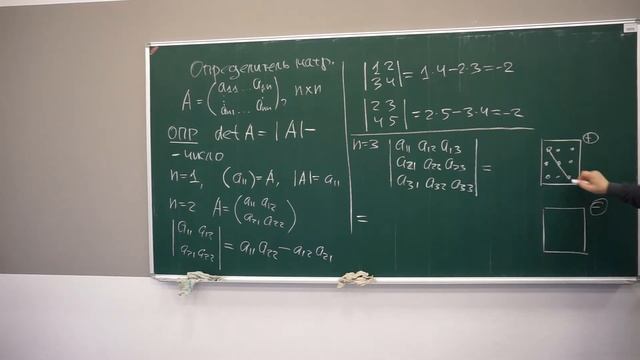 Определитель матр.
A = (a₁₁ ... a₁ₙ
aₙ₁ ... aₙₙ), n×n
ОПР det A = |A| –
– число
n=1, (a₁₁) = A, |A| = a₁₁
n=2 A = (a₁₁ a₁₂
a₂₁ a₂₂)
|a₁₁ a₁₂
a₂₁ a₂₂| = a₁₁a₂₂ – a₁₂a₂₁
|1 2
3 4| = 1·4–2·3=–2
|2 3
4 5| = 2·5–3·4=–2
n=3 |a₁₁ a₁₂ a₁₃
a₂₁ a₂₂ a₂₃
a₃₁ a₃₂ a₃₃| =
=
+
–